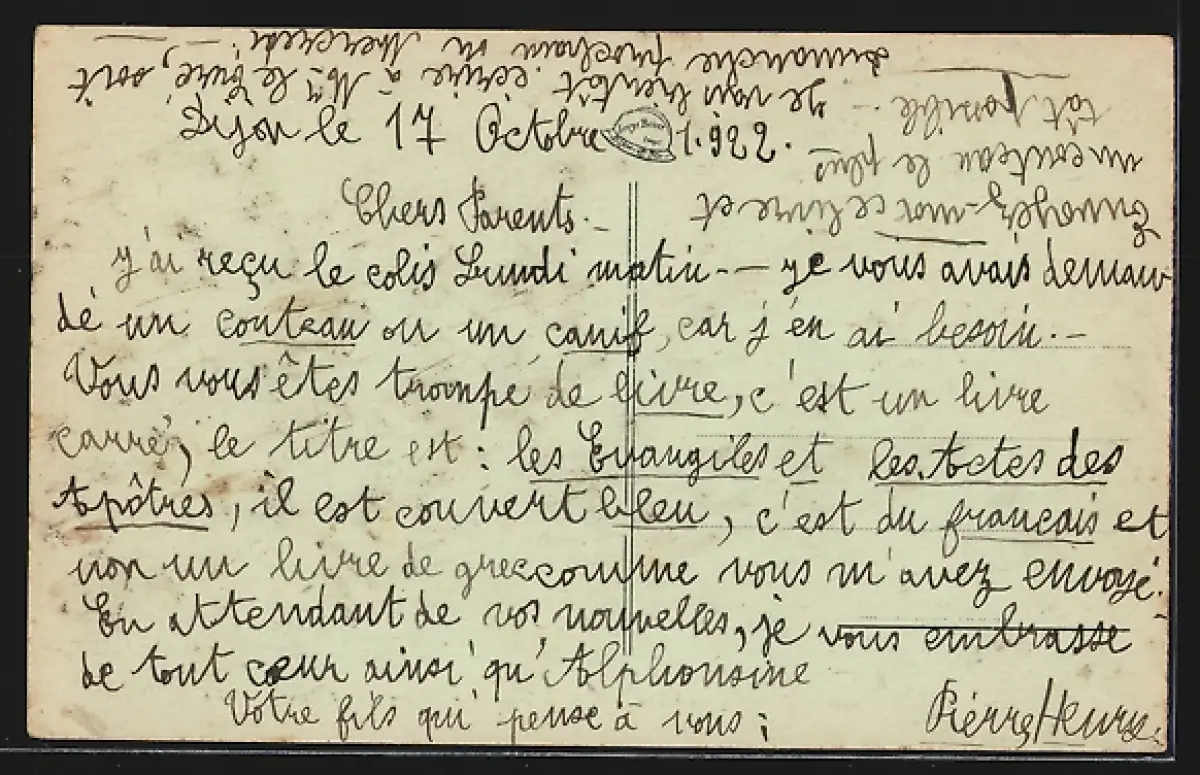 Dijon le 17 Octobre 1.922.
Chers Parents.
J'ai reçu le colis Lundi matin. — je vous avais deman
dé un couteau ou un canif, car j'en ai besoin. —
Vous vous êtes trompé de livre, c'est un livre
carré, le titre est : les Evangiles et les Actes des
Apôtres, il est couvert bleu, c'est du français et
non un livre de grec comme vous m'avez envoyé.
En attendant de vos nouvelles, je vous embrasse
de tout cœur ainsi qu'Alphonsine
Votre fils qui pense à vous ;
Pierre Henry.
Envoyez-moi ce livre et
un couteau le plus
tôt possible. —
Je vais bientôt écrire à Mr le Curé, soit
dimanche prochain ou Mercredi. —